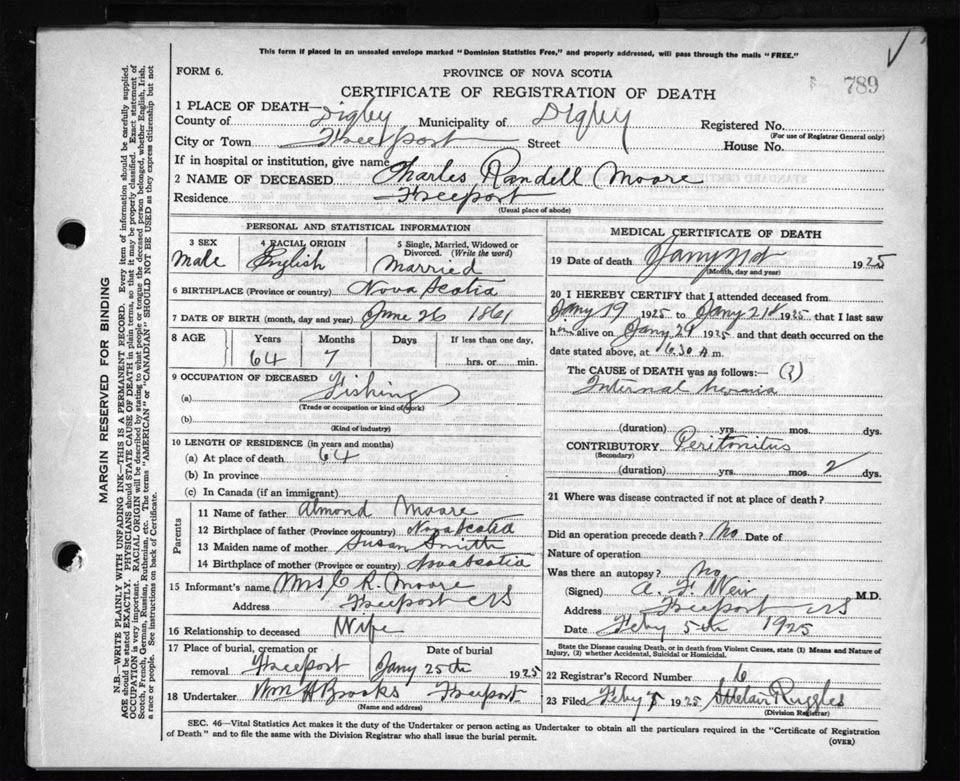 This form if placed in an unsealed envelope marked "Dominion Statistics Free," and properly addressed, will pass through the mails "FREE."
789
FORM 6.
PROVINCE OF NOVA SCOTIA
CERTIFICATE OF REGISTRATION OF DEATH
1 PLACE OF DEATH—
County of Digby Municipality of Digby Registered No.
(For use of Registrar General only)
City or Town Freeport Street House No.
If in hospital or institution, give name
2 NAME OF DECEASED Charles Randell Moore
Residence Freeport
(Usual place of abode)
PERSONAL AND STATISTICAL INFORMATION
3 SEX 4 RACIAL ORIGIN 5 Single, Married, Widowed or Divorced. (Write the word)
Male English Married
6 BIRTHPLACE (Province or country) Nova Scotia
7 DATE OF BIRTH (month, day and year) June 26 1861
8 AGE Years Months Days If less than one day,
64 7 hrs. or min.
9 OCCUPATION OF DECEASED
(a) Fishing
(Trade or occupation or kind of work)
(b)
(Kind of industry)
10 LENGTH OF RESIDENCE (in years and months)
(a) At place of death 64
(b) In province
(c) In Canada (if an immigrant)
Parents
11 Name of father Almond Moore
12 Birthplace of father (Province or country) Nova Scotia
13 Maiden name of mother Susan Smith
14 Birthplace of mother (Province or country) Nova Scotia
15 Informant's name Mrs C R. Moore
Address Freeport NS
16 Relationship to deceased Wife
17 Place of burial, cremation or removal Freeport
Date of burial Jany 25th 1925
18 Undertaker Wm H Brooks Freeport
(Name and address)
MEDICAL CERTIFICATE OF DEATH
19 Date of death Jany 21st 1925
(Month, day and year)
20 I HEREBY CERTIFY that I attended deceased from
Jany 19 1925 to Jany 21st 1925 that I last saw
him alive on Jany 1925 and that death occurred on the
date stated above, at 6.30 A m.
The CAUSE of DEATH was as follows:—
Internal hernia
(duration) yrs. mos. dys.
CONTRIBUTORY Peritonitus
(Secondary)
(duration) yrs. mos. 2 dys.
21 Where was disease contracted if not at place of death?
Did an operation precede death? No Date of
Nature of operation
Was there an autopsy? No
(Signed) A. F. Weir M.D.
Address Freeport NS
Date Feby 5th 1925
State the Disease causing Death, or in death from Violent Causes, state (1) Means and Nature of Injury, (2) whether Accidental, Suicidal or Homicidal.
22 Registrar's Record Number 6
23 Filed Feby 5 1925 StClair Ruggles
(Division Registrar)
SEC. 46—Vital Statistics Act makes it the duty of the Undertaker or person acting as Undertaker to obtain all the particulars required in the "Certificate of Registration
of Death" and to file the same with the Division Registrar who shall issue the burial permit.
(OVER)
MARGIN RESERVED FOR BINDING
N.B.—WRITE PLAINLY WITH UNFADING INK—THIS IS A PERMANENT RECORD. Every item of information should be carefully supplied.
AGE should be stated EXACTLY. PHYSICIANS should STATE CAUSE OF DEATH in plain terms, so that it may be properly classified. Exact statement of
OCCUPATION is very important. RACIAL ORIGIN will be described by stating to what people or tongue the deceased person belonged, whether English, Irish,
Scotch, French, German, Russian, Ruthenian, etc. The terms "AMERICAN" or "CANADIAN" SHOULD NOT BE USED as they express citizenship but not
a race or people. See instructions on back of Certificate.